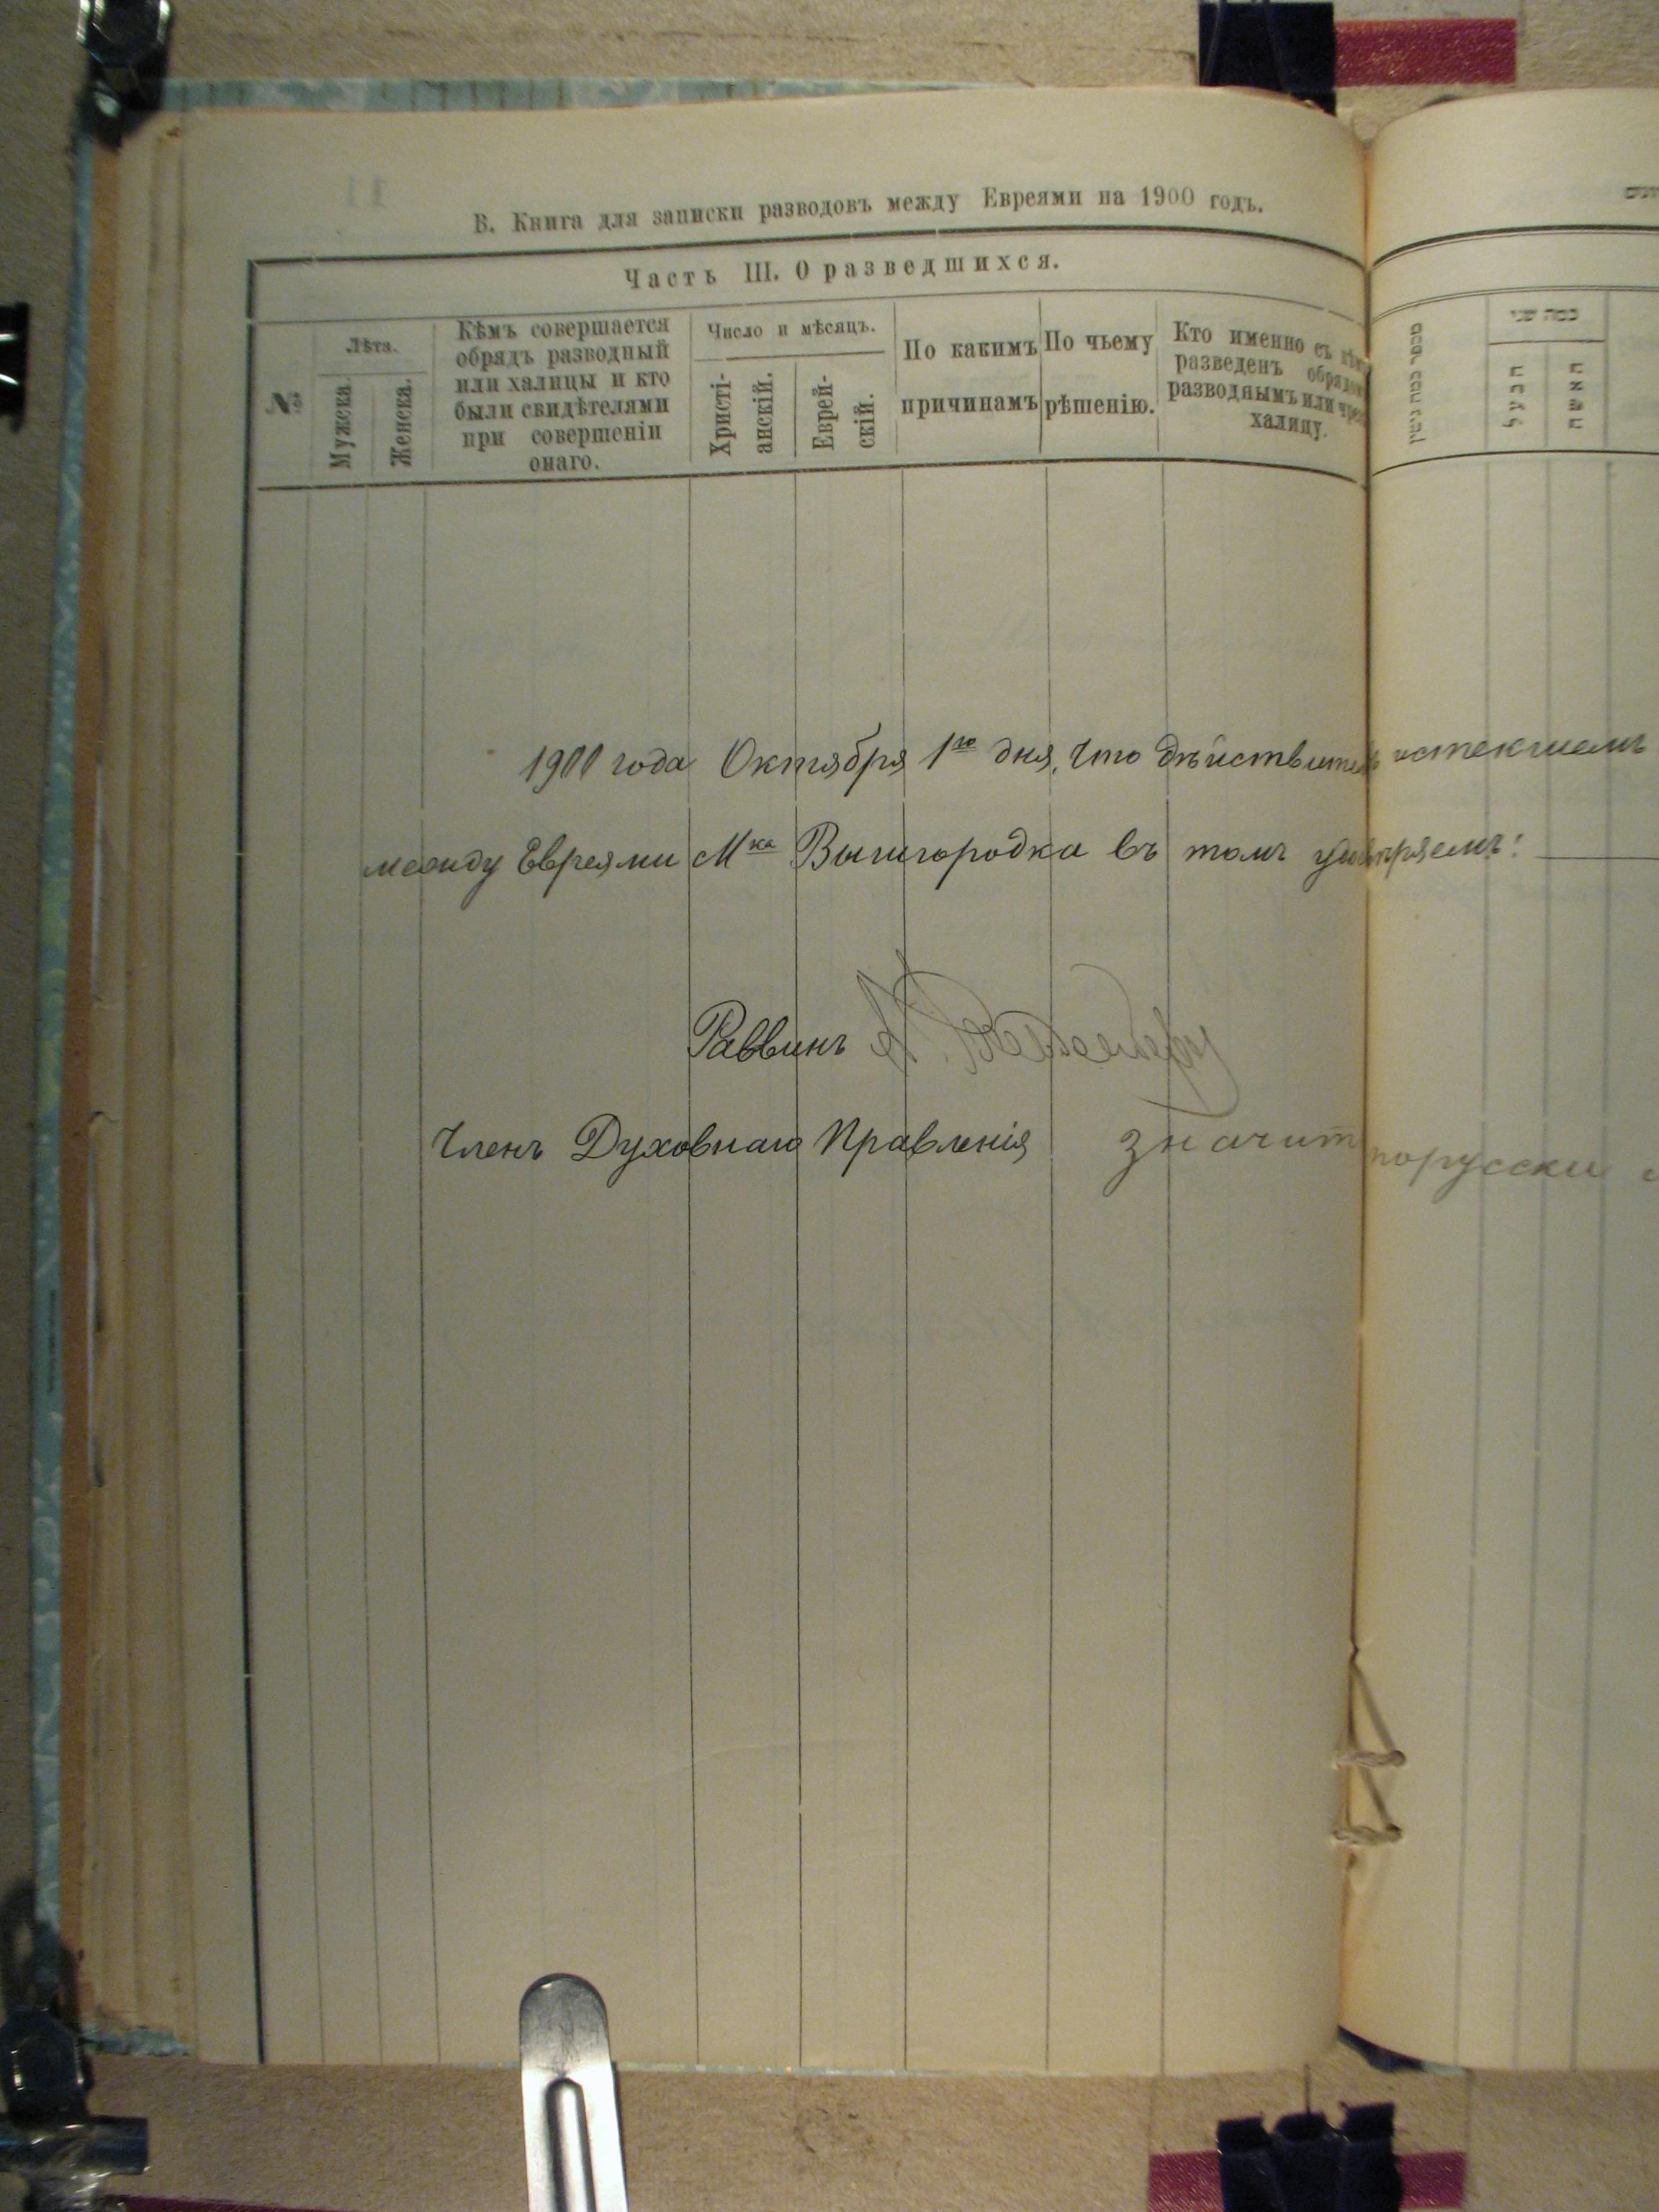 В. Книга для записки разводовъ между Евреями на 1900 годъ.
Часть III. О разведшихся.
№
Лѣта.
Мужска.
Женска.
Кѣмъ совершается
обрядъ разводный
или халицы и кто
были свидѣтелями
при совершеніи
онаго.
Число и мѣсяцъ.
Христі-
анскій.
Еврей-
скій.
По какимъ
причинамъ
По чьему
рѣшенію.
Кто именно съ
разведенъ
разводнымъ или
халицу.
כמה שני
הבעל
האשה
1900 года Октября 1го дня, что истекшемъ
между Евреями Мка Вышгородка въ томъ
Раввинъ
Членъ Духовнаго Правленія значит порусски